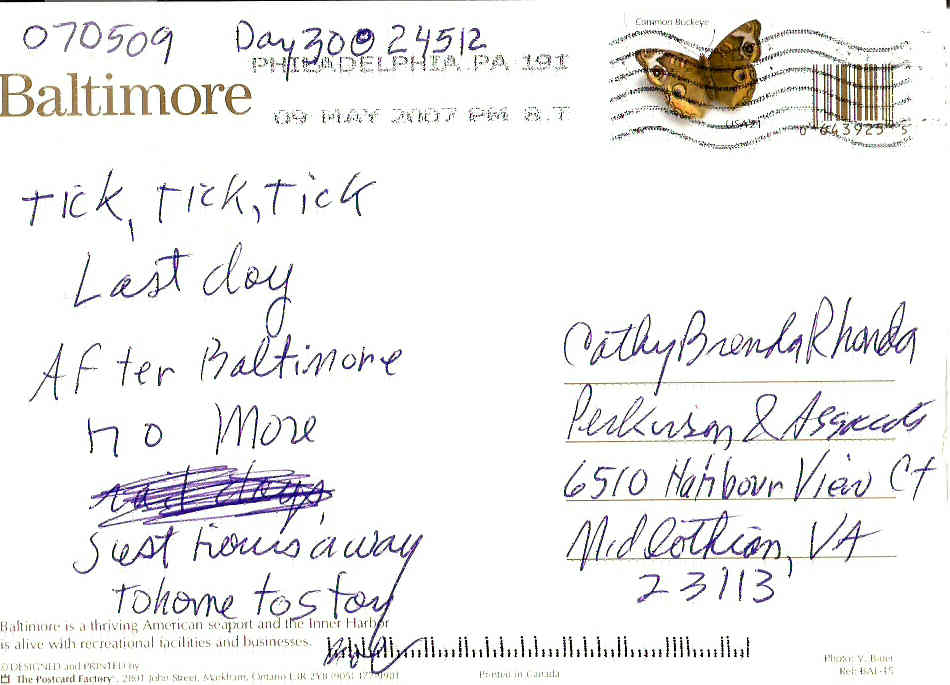 070509 Day 300 24512
PHILADELPHIA PA 191
Baltimore
09 MAY 2007 PM 8 T
Common Buckeye
USA24
0 643925 5
Tick, Tick, Tick
Last day
After Baltimore
no More
rail days,
Just hours away
To home to stay
Cathy Brenda Rhonda
Perkinson & Associates
6510 Harbour View Ct
Midlothian, VA
23113
Baltimore is a thriving American seaport and the Inner Harbor
is alive with recreational facilities and businesses.
© DESIGNED and PRINTED by
The Postcard Factory, 2801 John Street, Markham, Ontario L3R 2Y8 (905) 477-9901
Printed in Canada
Photo: V. Bauer
Ref: BAL-15